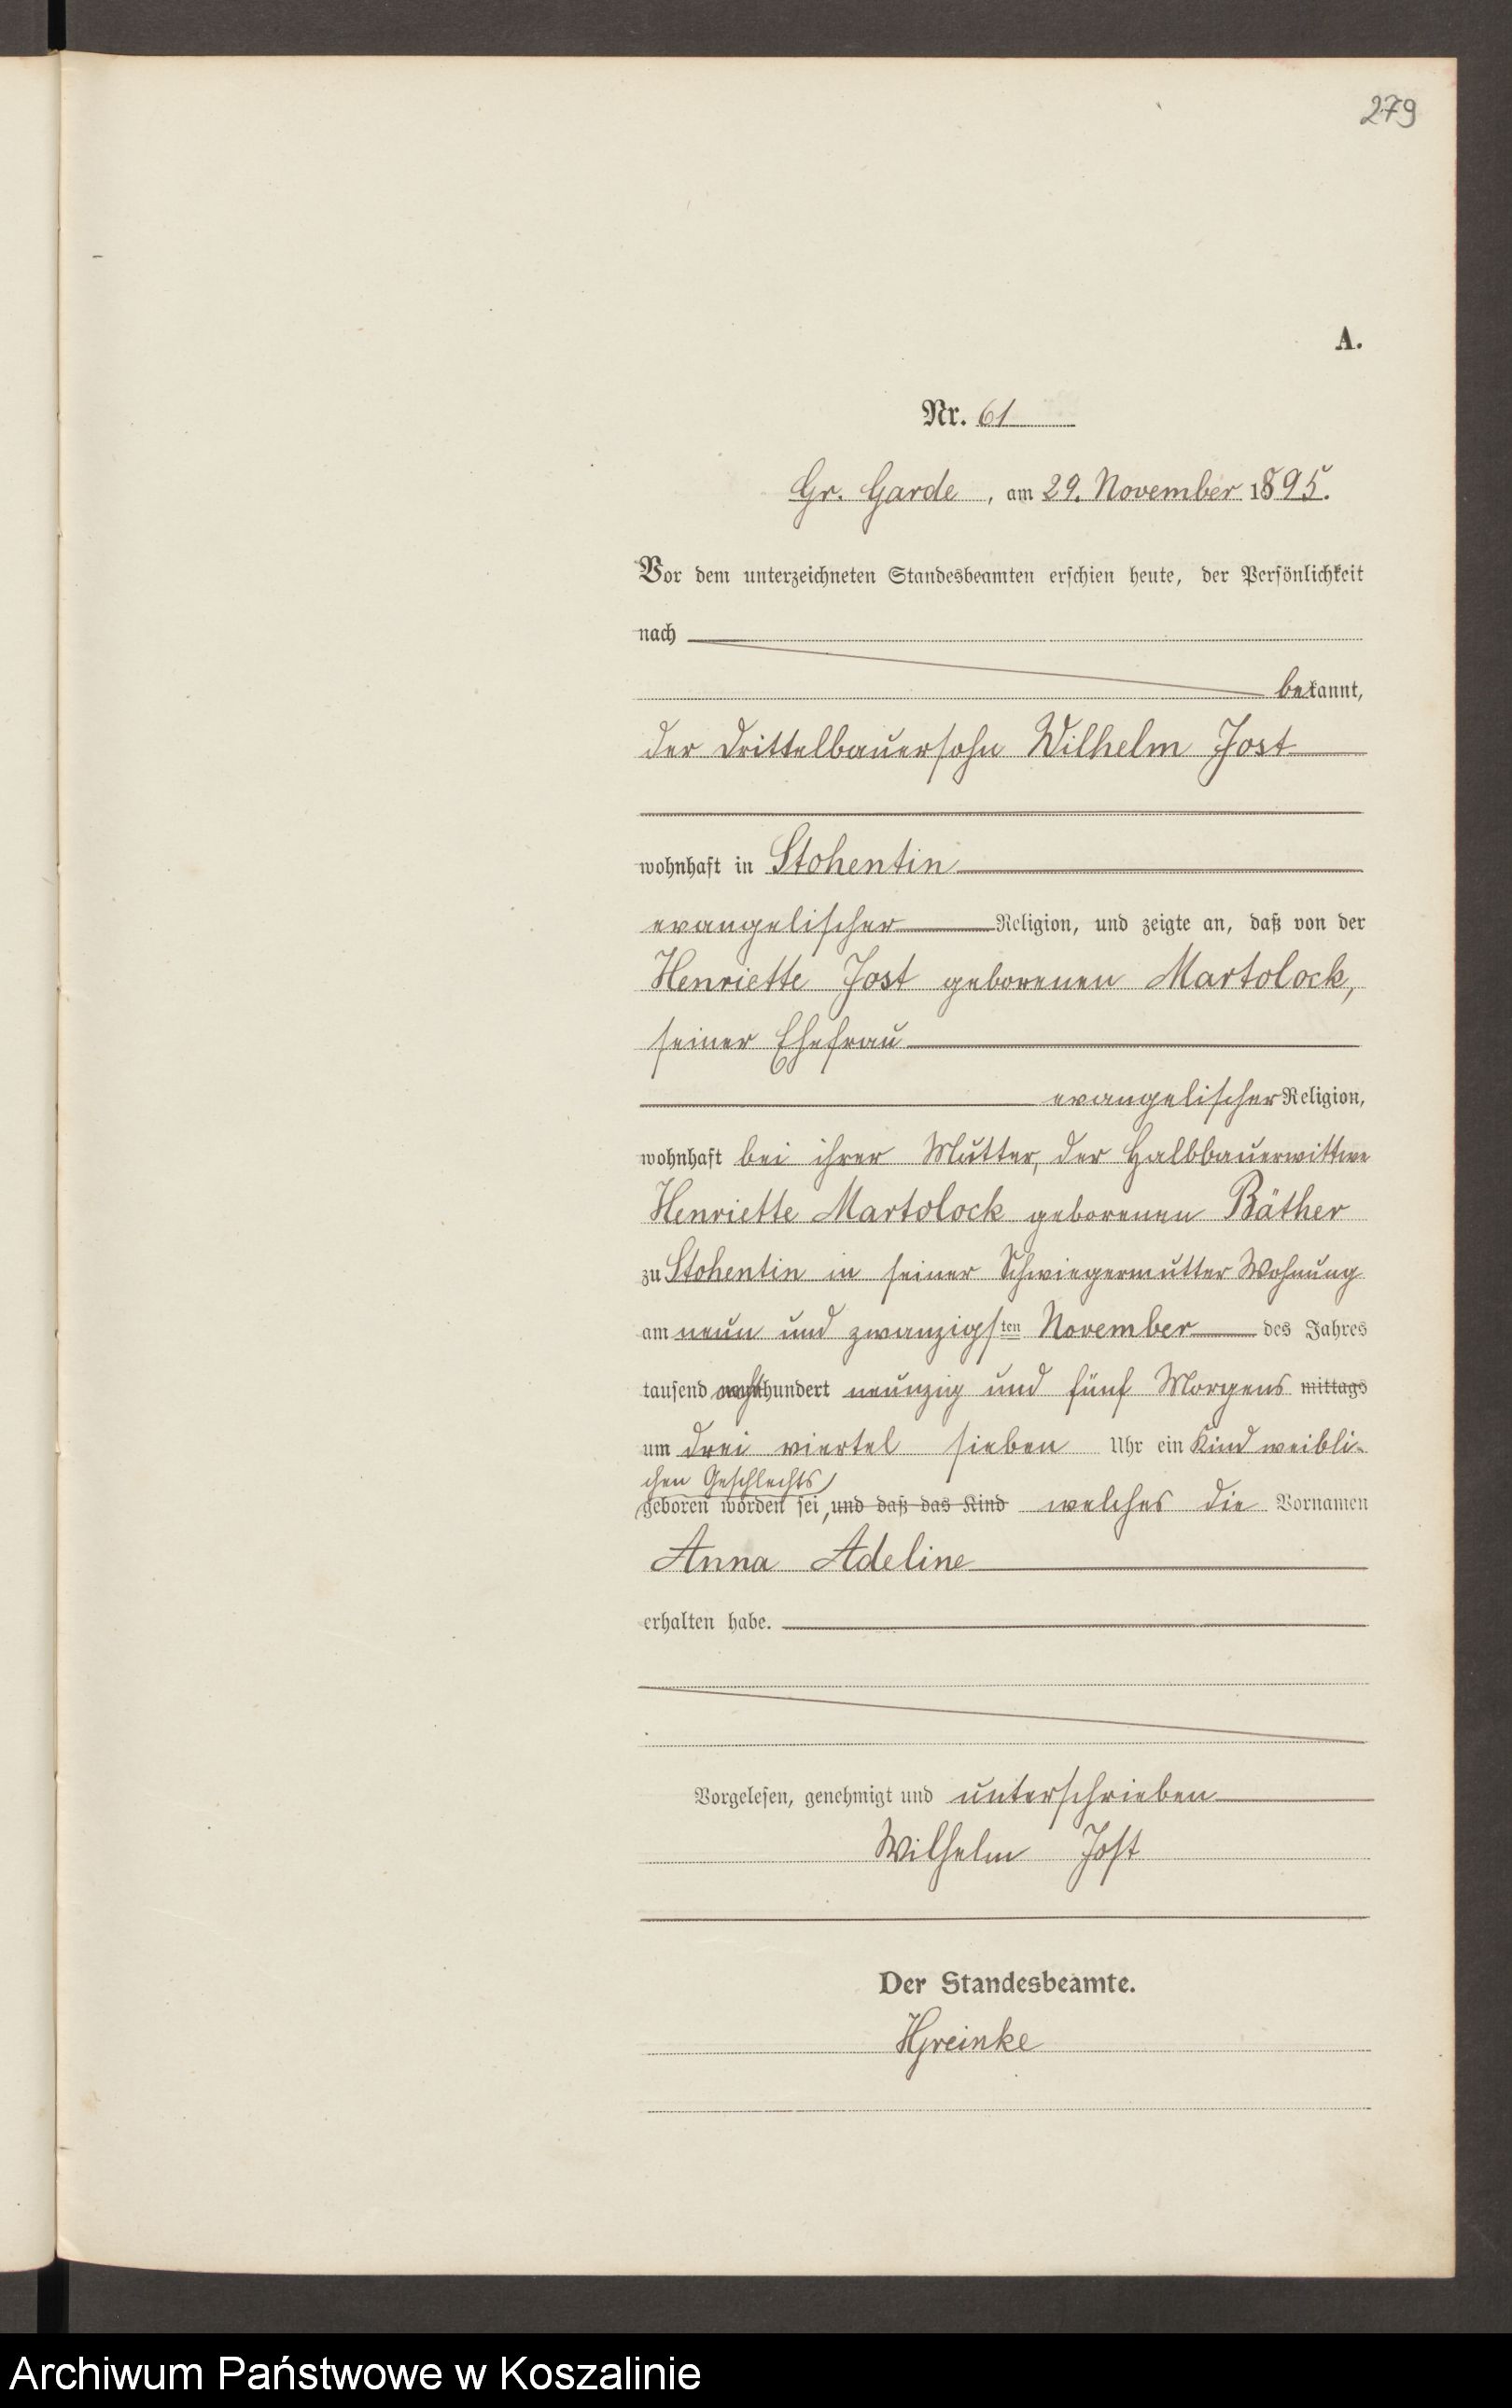 279
A.
Nr. 61
Gr. Garde, am 29. November 1895.
Vor dem unterzeichneten Standesbeamten erschien heute, der Persönlichkeit
nach
bekannt,
der Drittelbauersohn Wilhelm Jost
wohnhaft in Stohentin
evangelischer Religion, und zeigte an, daß von der
Henriette Jost geborenen Martolock,
seiner Ehefrau
evangelischer Religion,
wohnhaft bei ihrer Mutter, der Halbbauerwittwe
Henriette Martolock geborenen Bäther
zu Stohentin in seiner Schwiegermutter Wohnung
am neun und zwanzigsten November des Jahres
tausend achthundert neunzig und fünf Morgens mittags
um drei viertel sieben Uhr ein Kind weibli-
chen Geschlechts
geboren worden sei, und daß das Kind welches die Vornamen
Anna Adeline
erhalten habe.
Vorgelesen, genehmigt und unterschrieben
Wilhelm Jost
Der Standesbeamte.
Archiwum Państwowe w Koszalinie